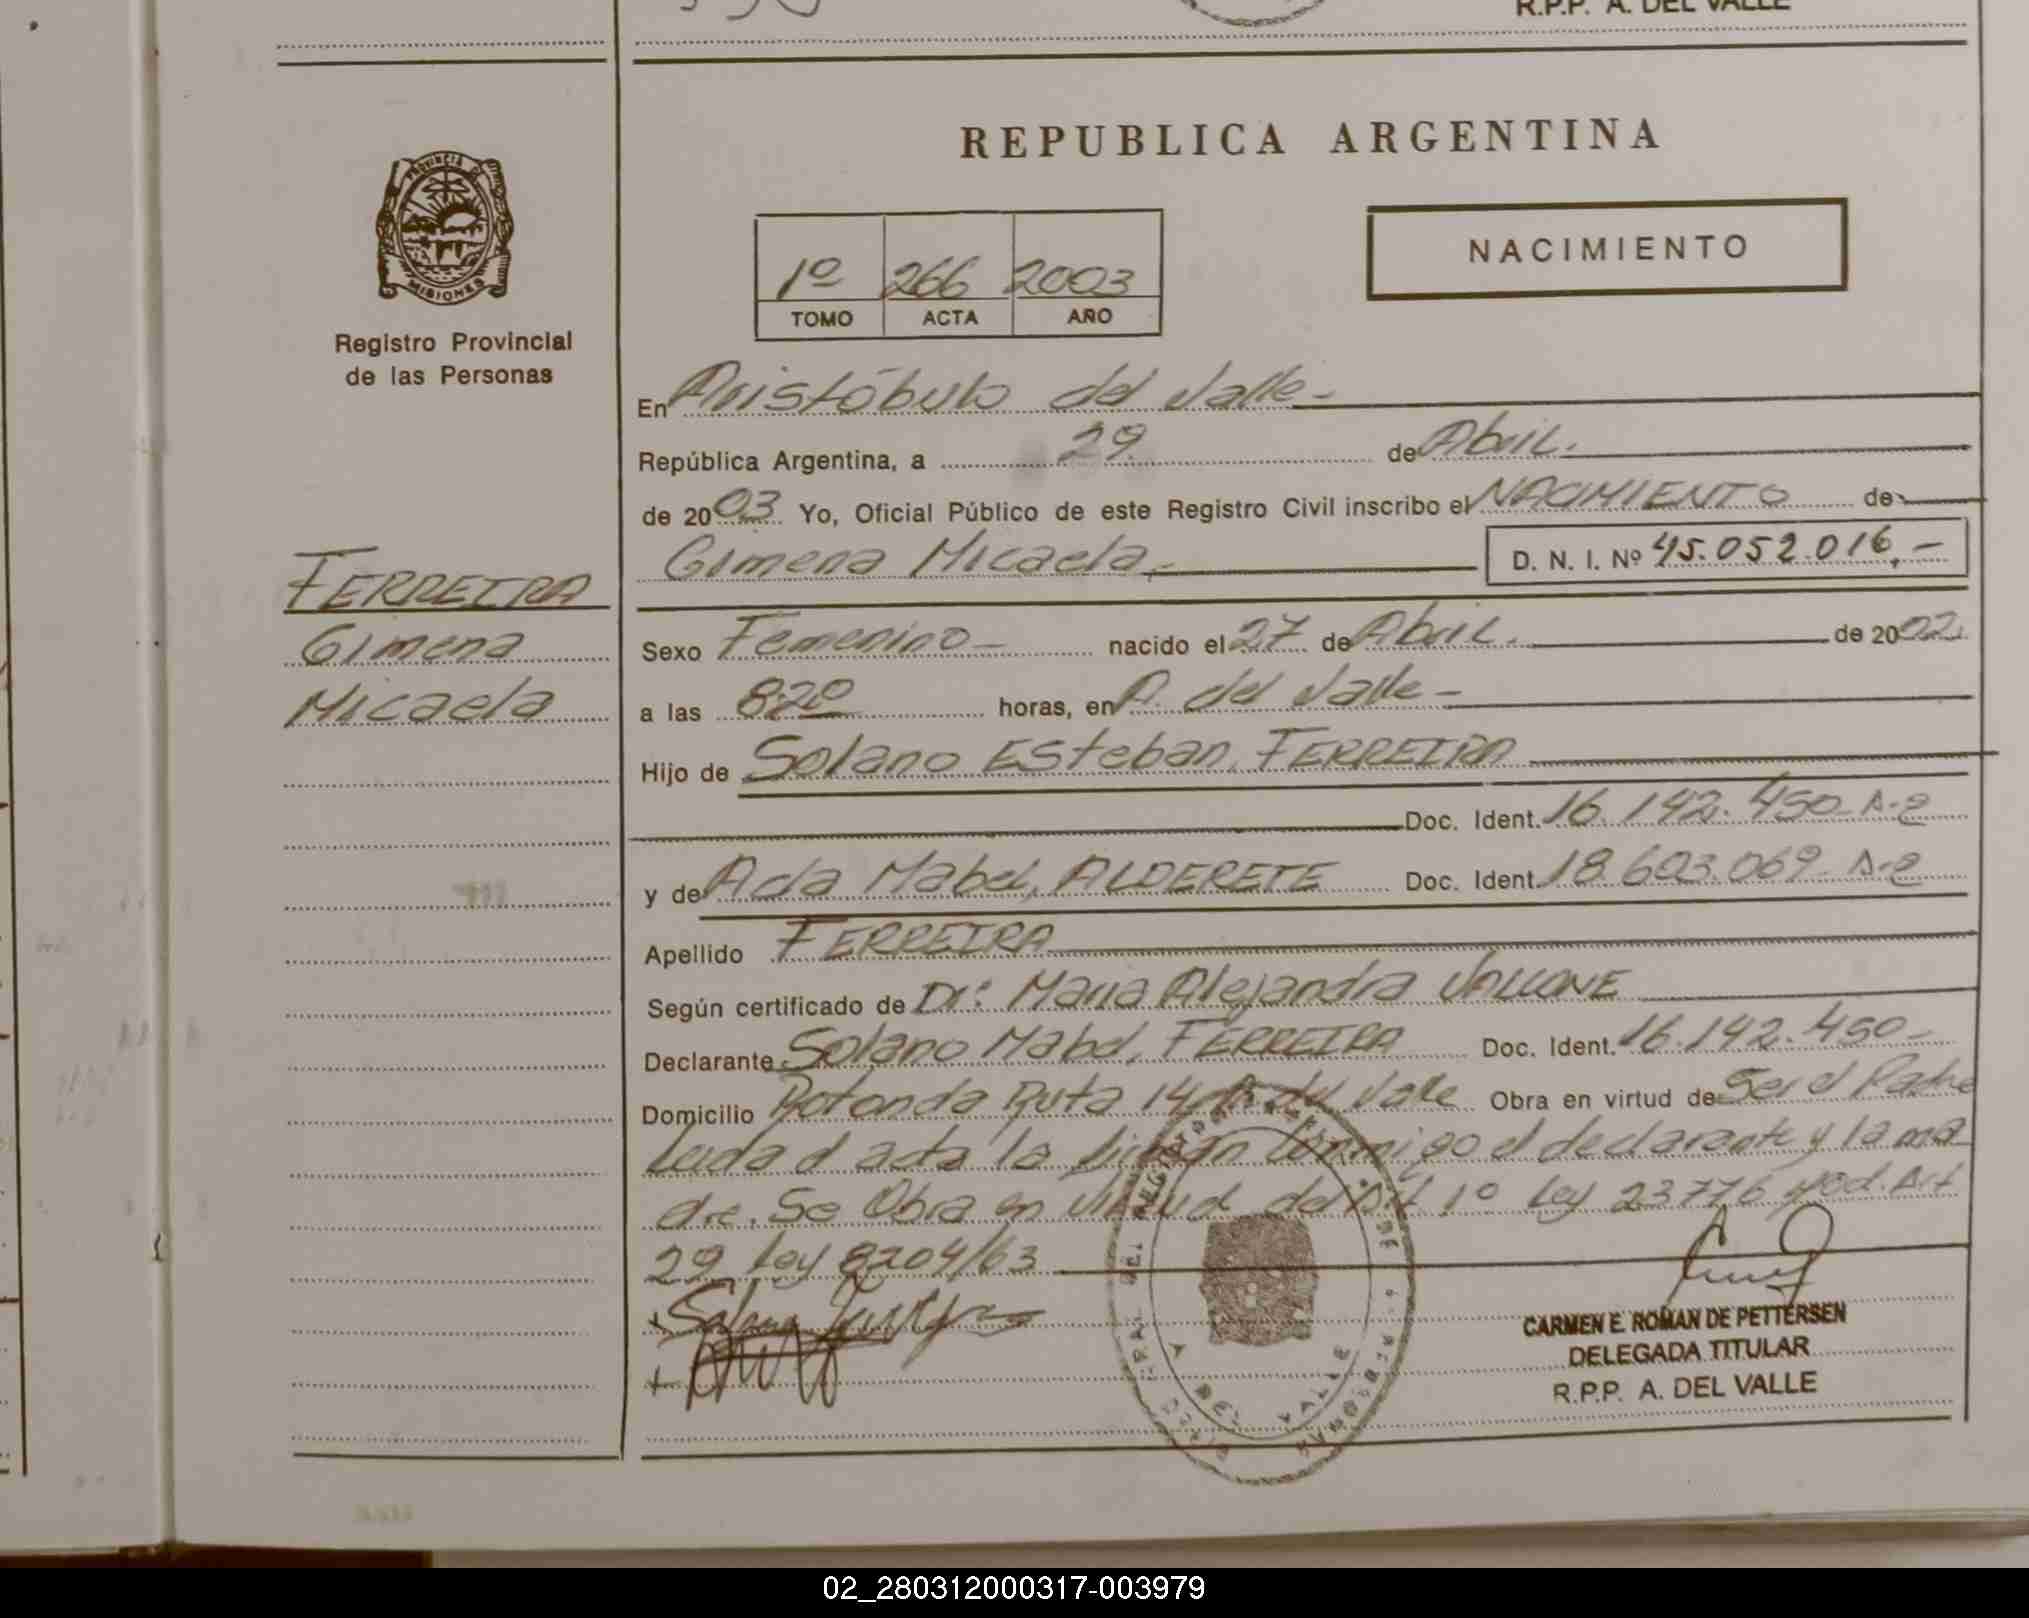 R.P.P. A. DEL VALLE
PROVINCIA DE
MISIONES
Registro Provincial
de las Personas
FERREIRA
Gimena
Micaela
REPUBLICA ARGENTINA
1º 266 2003
TOMO ACTA AÑO
NACIMIENTO
En Aristóbulo del Valle-
República Argentina, a 29 de Abril.
de 2003 Yo, Oficial Público de este Registro Civil inscribo el NACIMIENTO de
Gimena Micaela.- D. N. I. Nº 45.052.016.-
Sexo Femenino- nacido el 27 de Abril. de 2002.
a las 8:20 horas, en A. del Valle-
Hijo de Solano Esteban, FERREIRA
Doc. Ident. 16.142.450-
y de Ada Mabel, ALDERETE Doc. Ident. 18.603.069-
Apellido FERREIRA
Según certificado de Dr: Maria Alejandra VALLONE
Declarante Solano Mabel, FERREIRA Doc. Ident. 16.142.450-
Domicilio Rotonda Ruta 14 A. del Valle Obra en virtud de Ser el Padre
Leida el acta la firman conmigo el declarante y la ma
dre. Se Obra en virtud del Art 1º Ley 23776 Mod. Art
29 Ley 8204/63
CARMEN E. ROMAN DE PETTERSEN
DELEGADA TITULAR
R.P.P. A. DEL VALLE
A. DEL VALLE
02_280312000317-003979